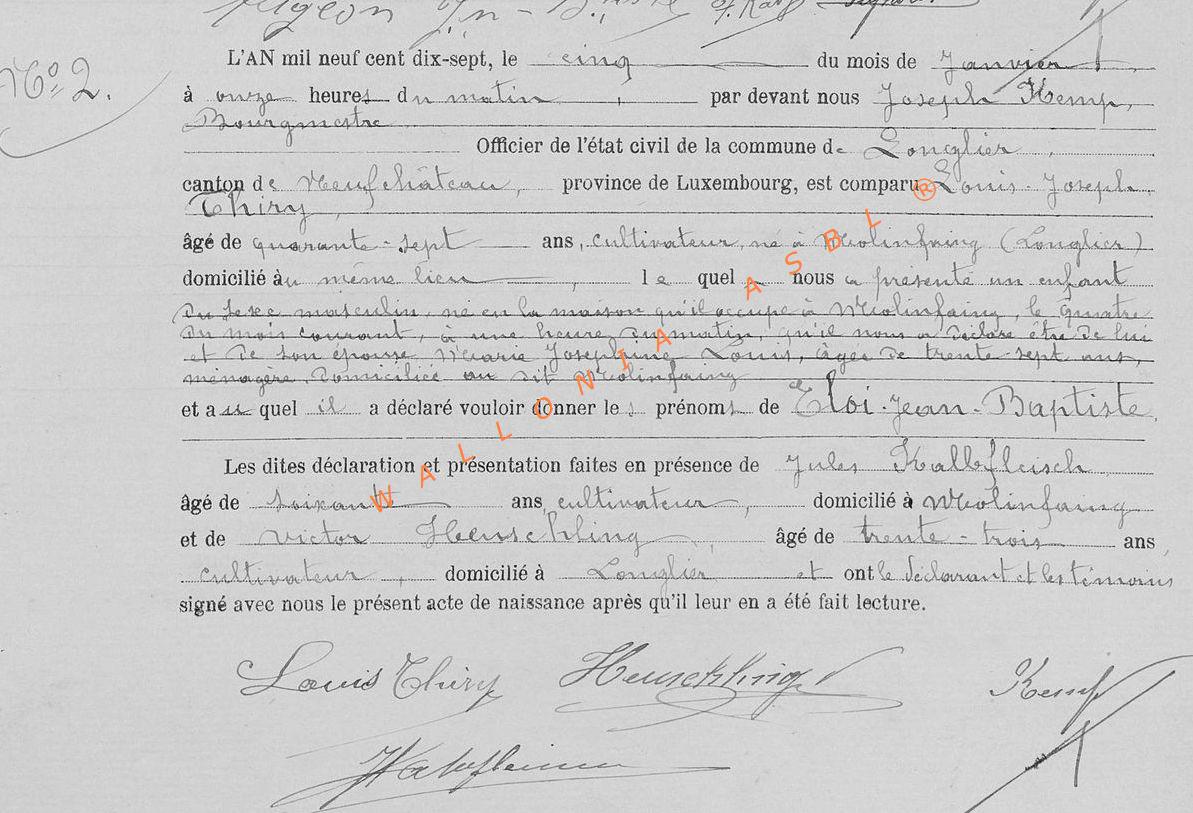 N° 2.
L'AN mil neuf cent dix-sept, le cinq du mois de Janvier,
à onze heures du matin, par devant nous Joseph Kemp,
Bourgmestre
Officier de l'état civil de la commune de Longlier,
canton de Neufchâteau, province de Luxembourg, est comparu Louis-Joseph
Thiry,
âgé de quarante-sept ans, cultivateur, né à Molinfaing (Longlier)
domicilié au même lieu, le quel nous a présenté un enfant
du sexe masculin, né en la maison qu'il occupe à Molinfaing, le quatre
du mois courant, à une heure du matin, qu'il nous a déclaré être de lui
et de son épouse Marie Josephine Louis, âgée de trente-sept ans,
ménagère, domiciliée au dit Molinfaing
et auquel il a déclaré vouloir donner les prénoms de Eloi-Jean-Baptiste
Les dites déclaration et présentation faites en présence de Jules Kalbfleisch
âgé de soixante ans, cultivateur, domicilié à Molinfaing
et de Victor Heuschling, âgé de trente-trois ans,
cultivateur, domicilié à Longlier et ont le déclarant et les témoins
signé avec nous le présent acte de naissance après qu'il leur en a été fait lecture.
Louis Thiry Heuschling Kemp
WALLONIA ASBL ®